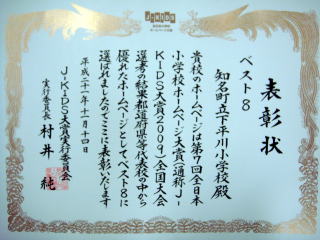 J-KIDS
表彰状
ベスト8
知名町立下平川小学校殿
貴校のホームページは第7回全日本
小学校ホームページ大賞(通称J-
KIDS大賞2009)全国大会
選考の結果都道府県等代表校の中から
優れたホームページとしてベスト8に
選ばれましたのでここに表彰いたします
平成二十一年十一月十四日
J-KIDS大賞実行委員会
実行委員長 村井 純